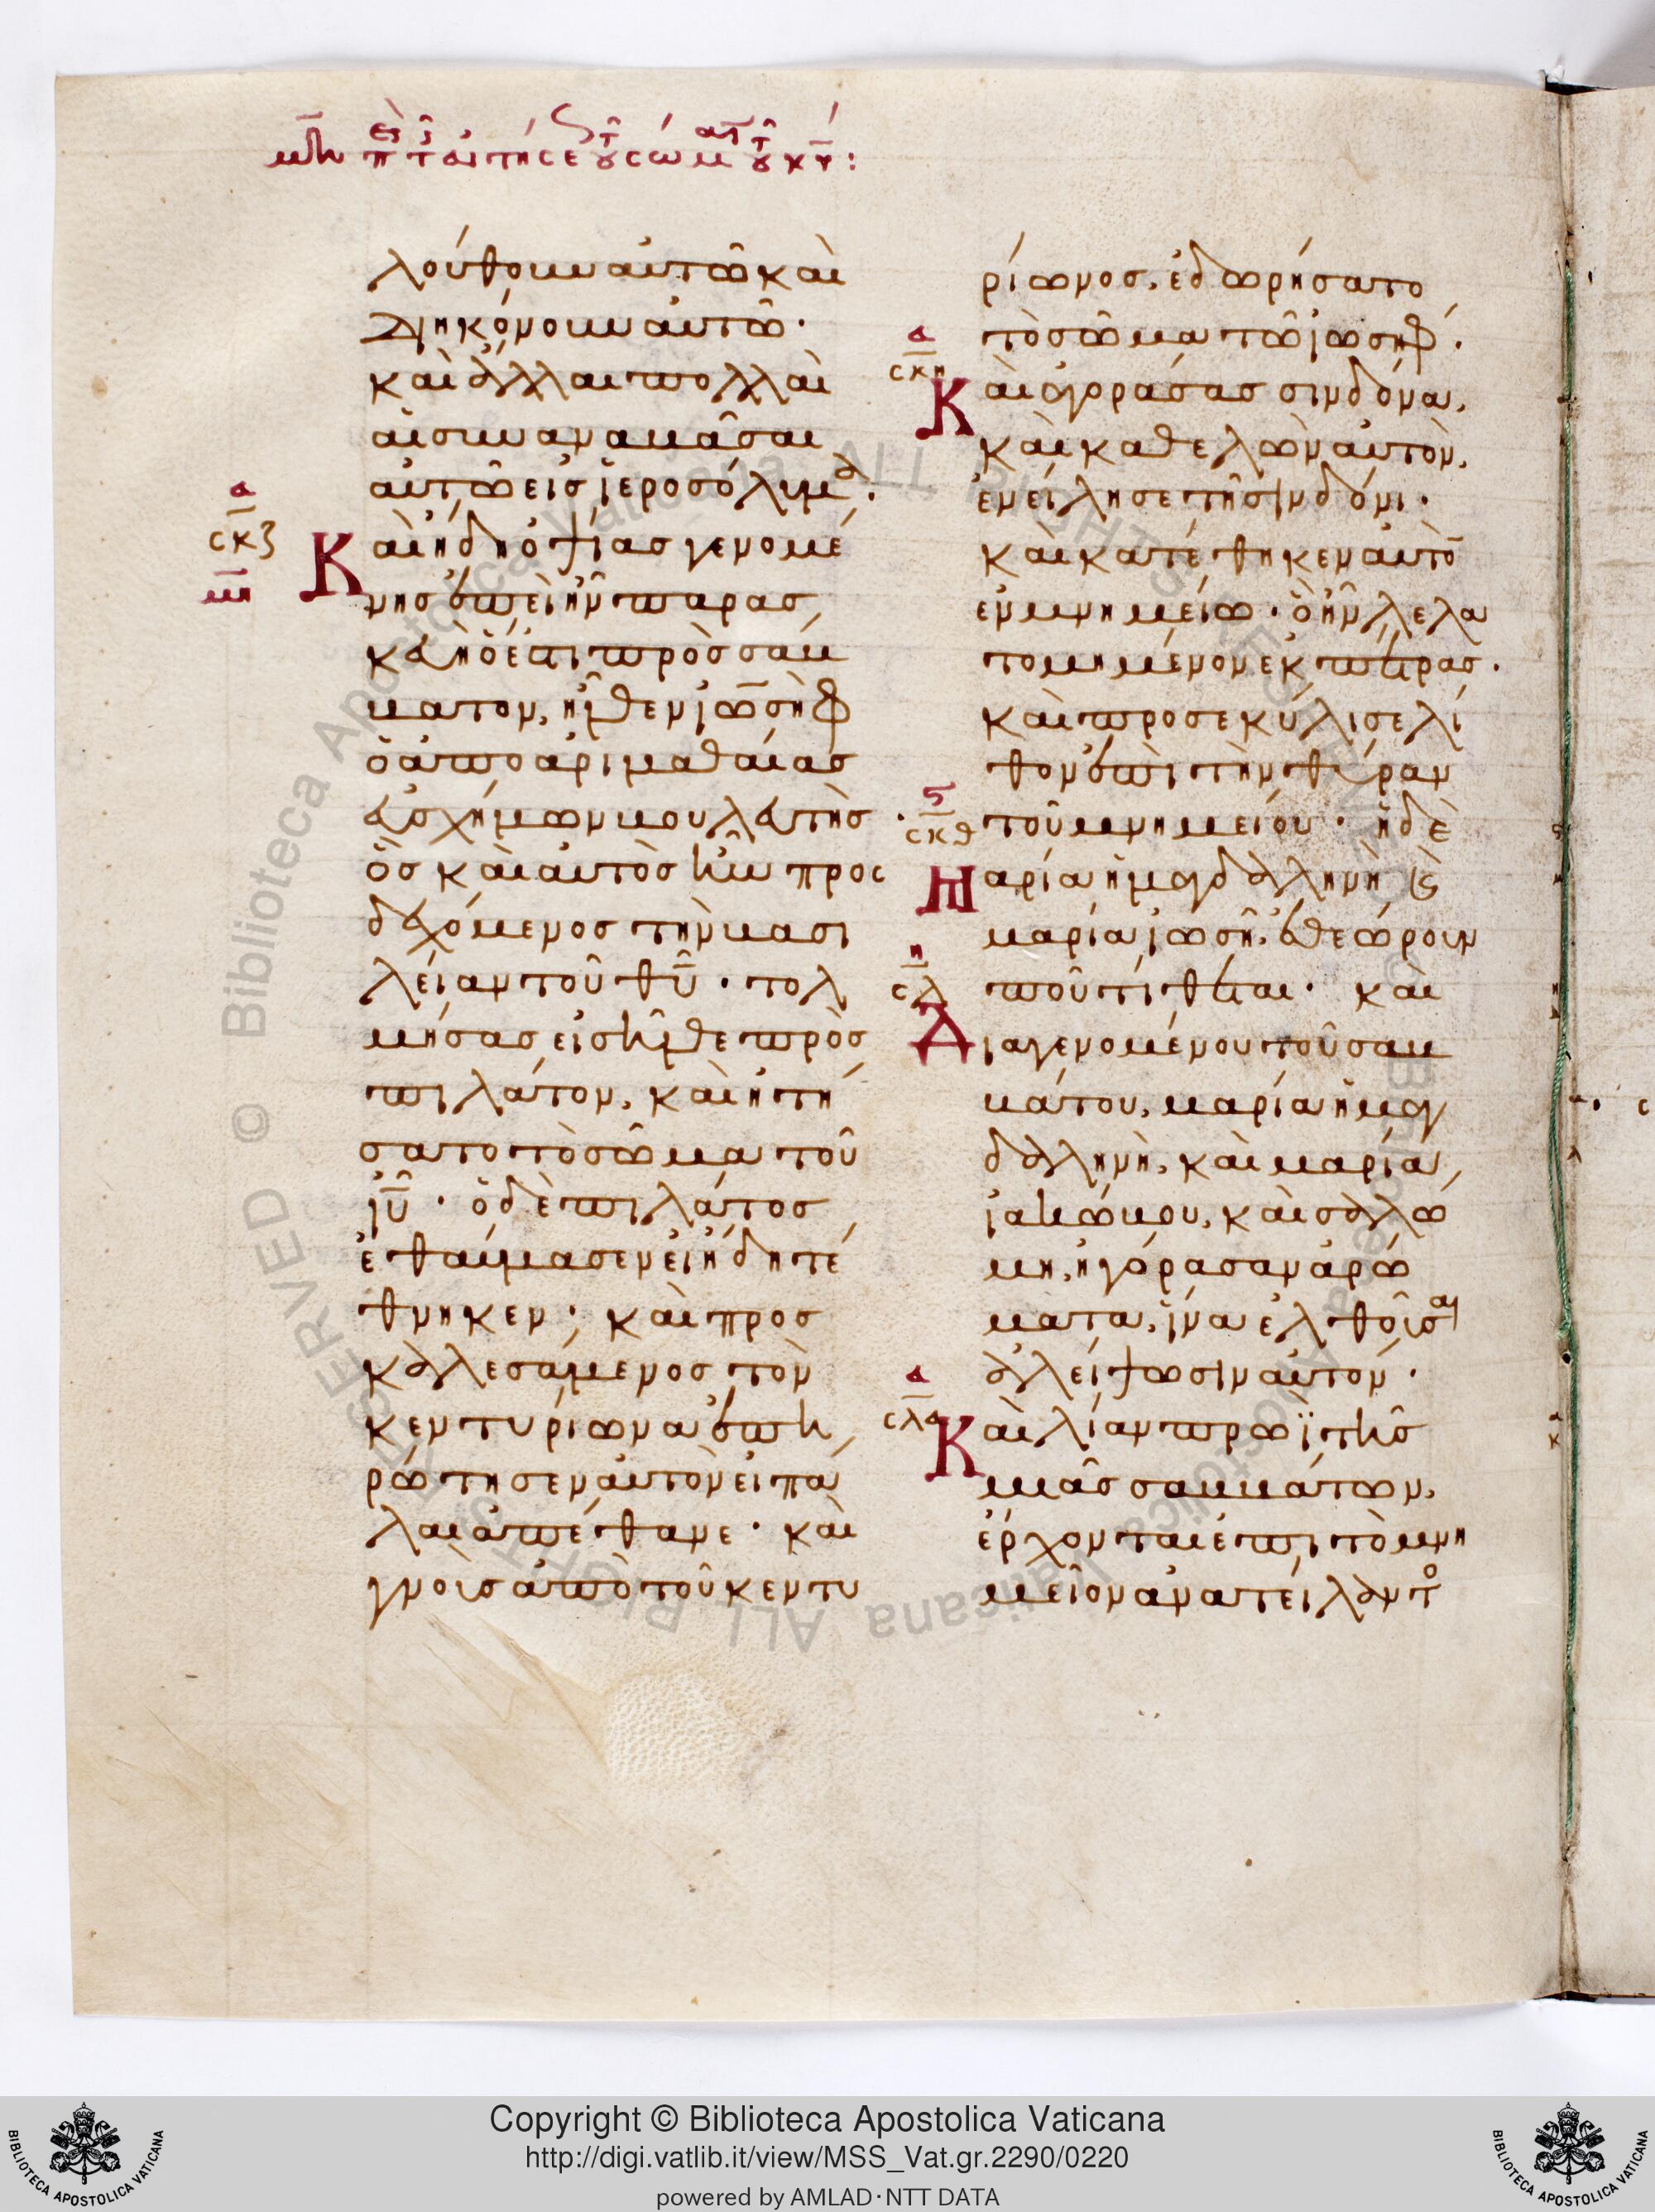 μη περὶ τῆς αἰτήσεως τοῦ σώματος τοῦ κυ:
λούθουν αὐτῶ καὶ
διηκόνουν αὐτῶ·
καὶ ἄλλαι πολλαὶ
αἱ συναναβᾶσαι
αὐτῶ εἰς ἱεροσόλυμα·
α
σκζ
μη
Καὶ ἤδη ὀψίας γενομέ
νης ἐπεὶ ἦν παρασ
κευὴ ὅ ἐστι πρὸς σάβ
βατον, ἦλθεν ἰωσὴφ
ὁ ἀπο ἀριμαθαίας
εὐσχήμων βουλευτὴς
ὃς καὶ αὐτὸς ἦν προσ
δεχόμενος τὴν βασι
λείαν τοῦ θυ· τολ
μήσας εἰσῆλθε πρὸς
πιλάτον, καὶ ἠτή
σατο τὸ σῶμα τοῦ
ιυ· ὁ δὲ πιλάτος
ἐθαύμασεν εἰ ἤδη τέ
θνηκεν· καὶ προσ
καλεσάμενος τὸν
κεντυρίωνα ἐπη
ρώτησεν αὐτὸν εἰ πά
λαι ἀπέθανε· καὶ
γνοὺς ἀπὸ τοῦ κεντυ
ρίωνος, ἐδωρήσατο
τὸ σῶμα τῶ ἰωσήφ·
α
σκη
Καὶ ἀγοράσας σινδόνα,
καὶ καθελὼν αὐτὸν,
ἐνείλησε τῆ σινδόνι·
καὶ κατέθηκεν αὐτὸ
ἐν μνημείω· ὃ ἦν λελα
τομημένον ἐκ πέτρας·
καὶ προσεκύλισε λί
θον ἐπὶ τὴν θύραν
ϛ
σκθ
τοῦ μνημείου· ἡ δὲ
Μαρία ἡ μαγδαληνὴ καὶ
μαρία ἰωσῆ, ἐθεώρουν
η
σλ
ποῦ τίθεται· καὶ
Διαγενομένου τοῦ σαβ
βάτου, μαρία ἡ μαγ
δαληνὴ, καὶ μαρία
ἰακώβου, καὶ σαλώ
μη, ἠγόρασαν ἀρώ
ματα, ἵνα ἐλθοῦσαι
ἀλείψωσιν αὐτόν·
α
σλα
Καὶ λίαν πρωῒ τῆς
μιᾶς σαββάτων,
ἔρχονται ἐπι τὸ μνη
μεῖον ἀνατείλαντο
Copyright © Biblioteca Apostolica Vaticana
http://digi.vatlib.it/view/MSS_Vat.gr.2290/0220
powered by AMLAD·NTT DATA
BIBLIOTECA APOSTOLICA VATICANA
BIBLIOTECA APOSTOLICA VATICANA